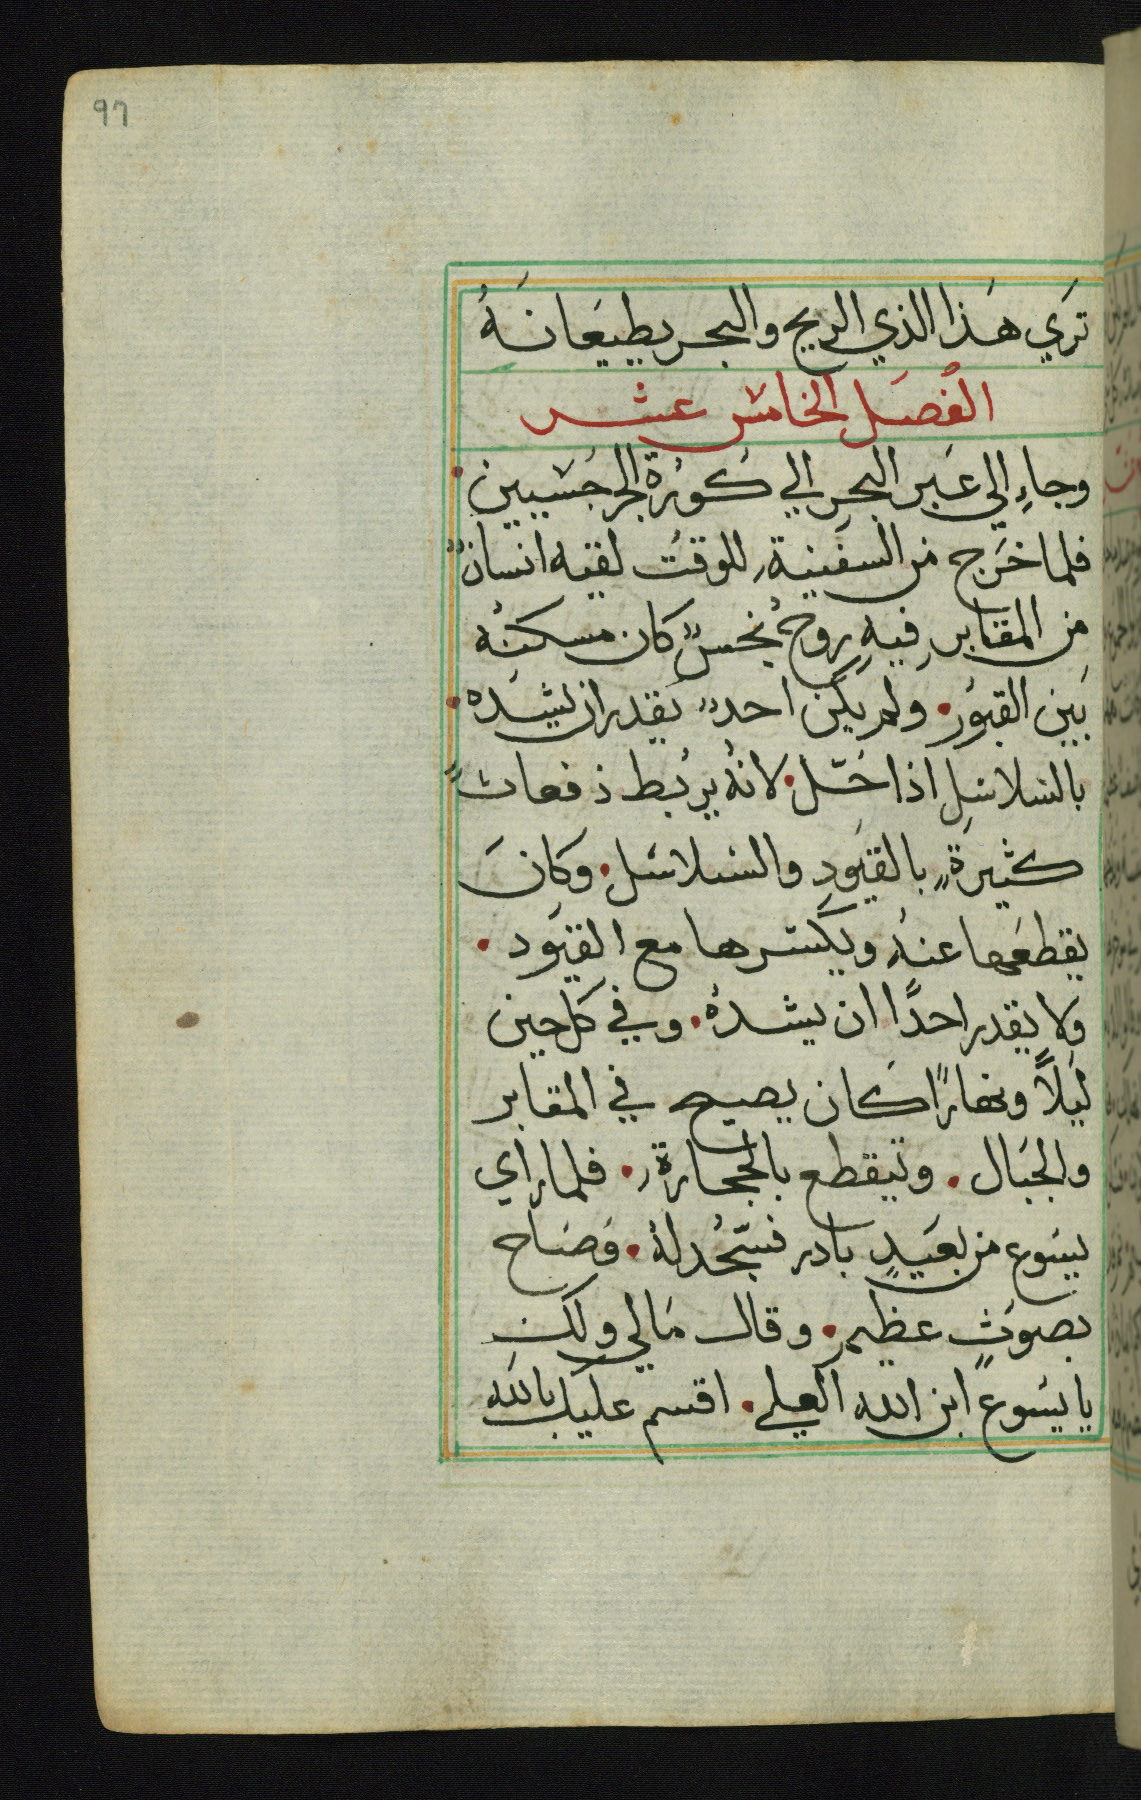 97
تَرَي هَذا الذي الريح والبحر يطيعَانَهُ
الفصَل الخامس عشر
وجاءِ الي عَبر البحر الي كُورَة الجرجسَيين.
فلما خَرج من السفينة للوقتُ لقيه انسانٌ
من المقابر فيهِ روحٌ نجسٌ كان مسكنُه
بَين القبوُر. ولم يكن احدٌ يَقدر ان يشَده.
بالسلاسِل اذا حَتَّل. لانهُ يربُط دفعات
كثيرَةٍ بالقيَودِ والسَلاسَل. وَكانَ
يقطعَها عنهُ ويكسرها مع القيَود.
وَلا يقدر احدًا ان يشدهُ. وفي كل حين
لَيلًا ونهارًا كان يصيح في المقابر
والجبَال. وتيقطع بالحجارة. فلما راي
يسَوع من بعَيدٍ بادر فسَجُد لهُ. فصَاح
بصوتٍ عظيمٍ. وقال مَالي ولك
يا يسَوعَ ابن الله العلي. اقسم عليك بالله